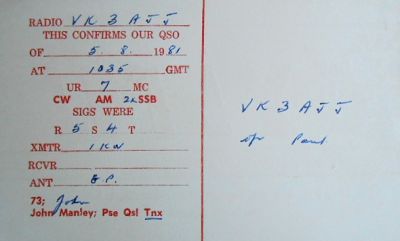 RADIO VK3AJJ
THIS CONFIRMS OUR QSO
OF 5. 8. 1981
AT 1035 GMT
UR 7 MC
CW AM 2xSSB
SIGS WERE
R 5 S 4 T
XMTR 1KW
RCVR
ANT G.P.
73; John
John Manley; Pse Qsl Tnx
VK3AJJ
op Paul